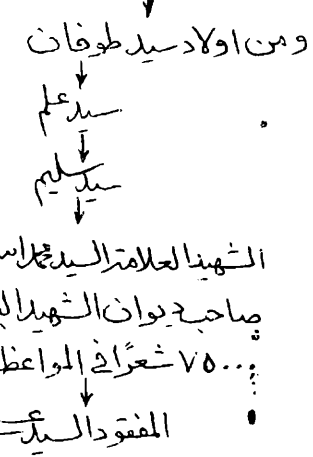 ومن اولاد سيد طوفان
سيد علم
سيد سليم
الشهيد العلامة السيد محمد
صاحب ديوان الشهيد
٧٥٠٠٠ شعرًا في المواعظ
المفقود السيد